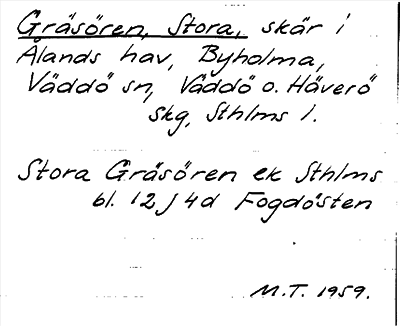 Gräsören, Stora, skär i
Ålands hav, Byholma,
Väddö sn, Väddö o. Häverö
skg, Sthlms l.
Stora Gräsören ek Sthlms
bl. 12 J 4d Fogdösten
M.T. 1959.